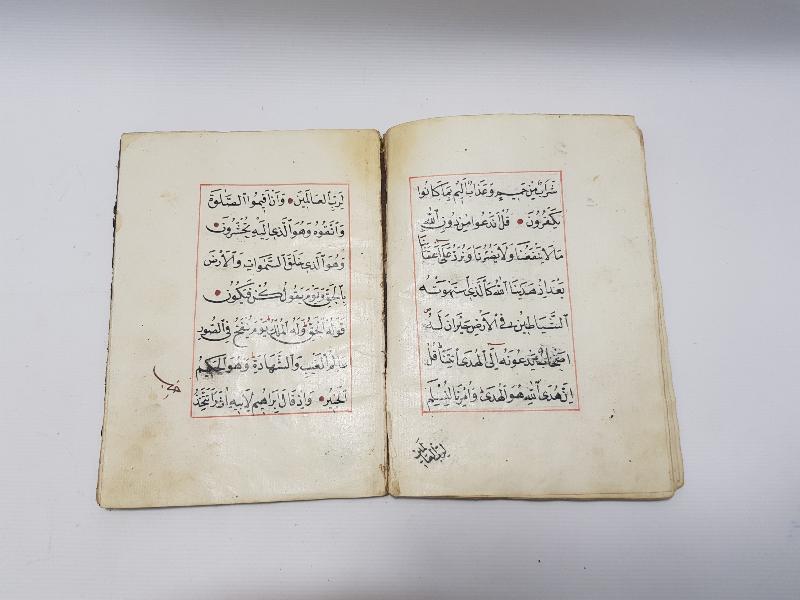 شراب من حميم وعذاب اليم بما كانوا
يكفرون قل اندعوا من دون الله
ما لا ينفعنا ولا يضرنا ونرد على اعقابنا
بعد اذ هدينا الله كالذى استهوته
الشياطين فى الارض حيران له
اصحاب يدعونه الى الهدى ائتنا قل
ان هدى الله هو الهدى وامرنا لنسلم
لرب العالمين
لرب العالمين وان اقيموا الصلوة
واتقوه وهو الذى اليه تحشرون
وهو الذى خلق السموات والارض
بالحق ويوم يقول كن فيكون
قوله الحق وله الملك يوم ينفخ فى الصور
عالم الغيب والشهادة وهو الحكيم
الخبير واذ قال ابراهيم لابيه ازر اتتخذ